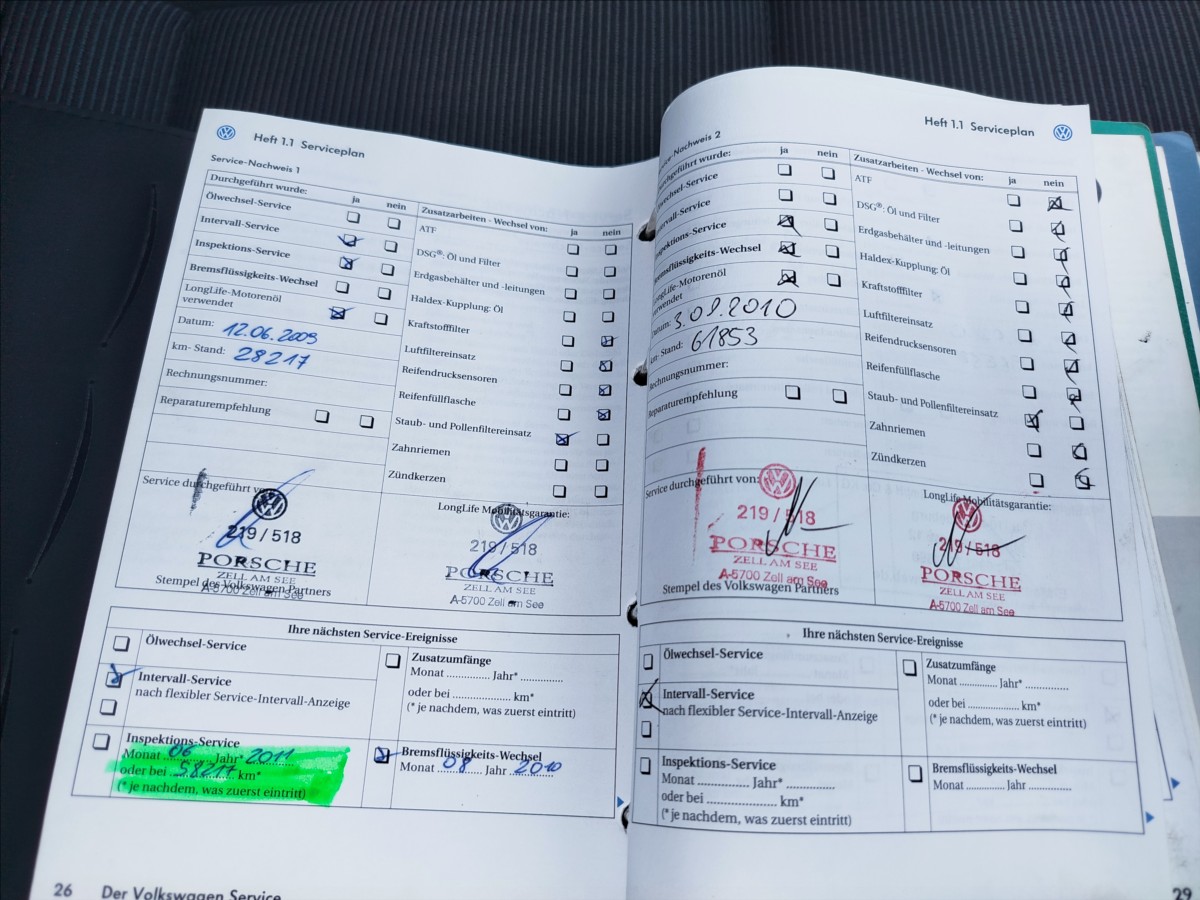 Heft 1.1 Serviceplan
Service-Nachweis 1
Durchgeführt wurde:
ja nein
Ölwechsel-Service
Intervall-Service
Inspektions-Service
Bremsflüssigkeits-Wechsel
LongLife-Motorenöl
verwendet
Datum: 12.06.2009
km- Stand: 28217
Rechnungsnummer:
Reparaturempfehlung
Zusatzarbeiten - Wechsel von: ja nein
ATF
DSG®: Öl und Filter
Erdgasbehälter und -leitungen
Haldex-Kupplung: Öl
Kraftstofffilter
Luftfiltereinsatz
Reifendrucksensoren
Reifenfüllflasche
Staub- und Pollenfiltereinsatz
Zahnriemen
Zündkerzen
Service durchgeführt von:
219 / 518
PORSCHE
ZELL AM SEE
A-5700 Zell am See
Stempel des Volkswagen Partners
LongLife Mobilitätsgarantie:
219 / 518
PORSCHE
ZELL AM SEE
A-5700 Zell am See
Ihre nächsten Service-Ereignisse
Ölwechsel-Service
Intervall-Service
nach flexibler Service-Intervall-Anzeige
Inspektions-Service
Monat 06 Jahr* 2011
oder bei 58217 km*
(* je nachdem, was zuerst eintritt)
Zusatzumfänge
Monat .............. Jahr* ..............
oder bei .................... km*
(* je nachdem, was zuerst eintritt)
Bremsflüssigkeits-Wechsel
Monat 08 Jahr 2010
26 Der Volkswagen Service
Heft 1.1 Serviceplan
Nachweis 2
wurde:
ja nein
Intervall-Service
Inspektions-Service
Bremsflüssigkeits-Wechsel
LongLife-Motorenöl
verwendet
Datum: 3.08.2010
km- Stand: 61853
Rechnungsnummer:
Reparaturempfehlung
Zusatzarbeiten - Wechsel von: ja nein
ATF
DSG®: Öl und Filter
Erdgasbehälter und -leitungen
Haldex-Kupplung: Öl
Kraftstofffilter
Luftfiltereinsatz
Reifendrucksensoren
Reifenfüllflasche
Staub- und Pollenfiltereinsatz
Zahnriemen
Zündkerzen
Service durchgeführt von:
219 / 518
PORSCHE
ZELL AM SEE
A-5700 Zell am See
Stempel des Volkswagen Partners
LongLife Mobilitätsgarantie:
219 / 518
PORSCHE
ZELL AM SEE
A-5700 Zell am See
Ihre nächsten Service-Ereignisse
Ölwechsel-Service
Intervall-Service
nach flexibler Service-Intervall-Anzeige
Inspektions-Service
Monat .............. Jahr* ..............
oder bei .................... km*
(* je nachdem, was zuerst eintritt)
Zusatzumfänge
Monat .............. Jahr* ..............
oder bei .................... km*
(* je nachdem, was zuerst eintritt)
Bremsflüssigkeits-Wechsel
Monat .............. Jahr ..............
29